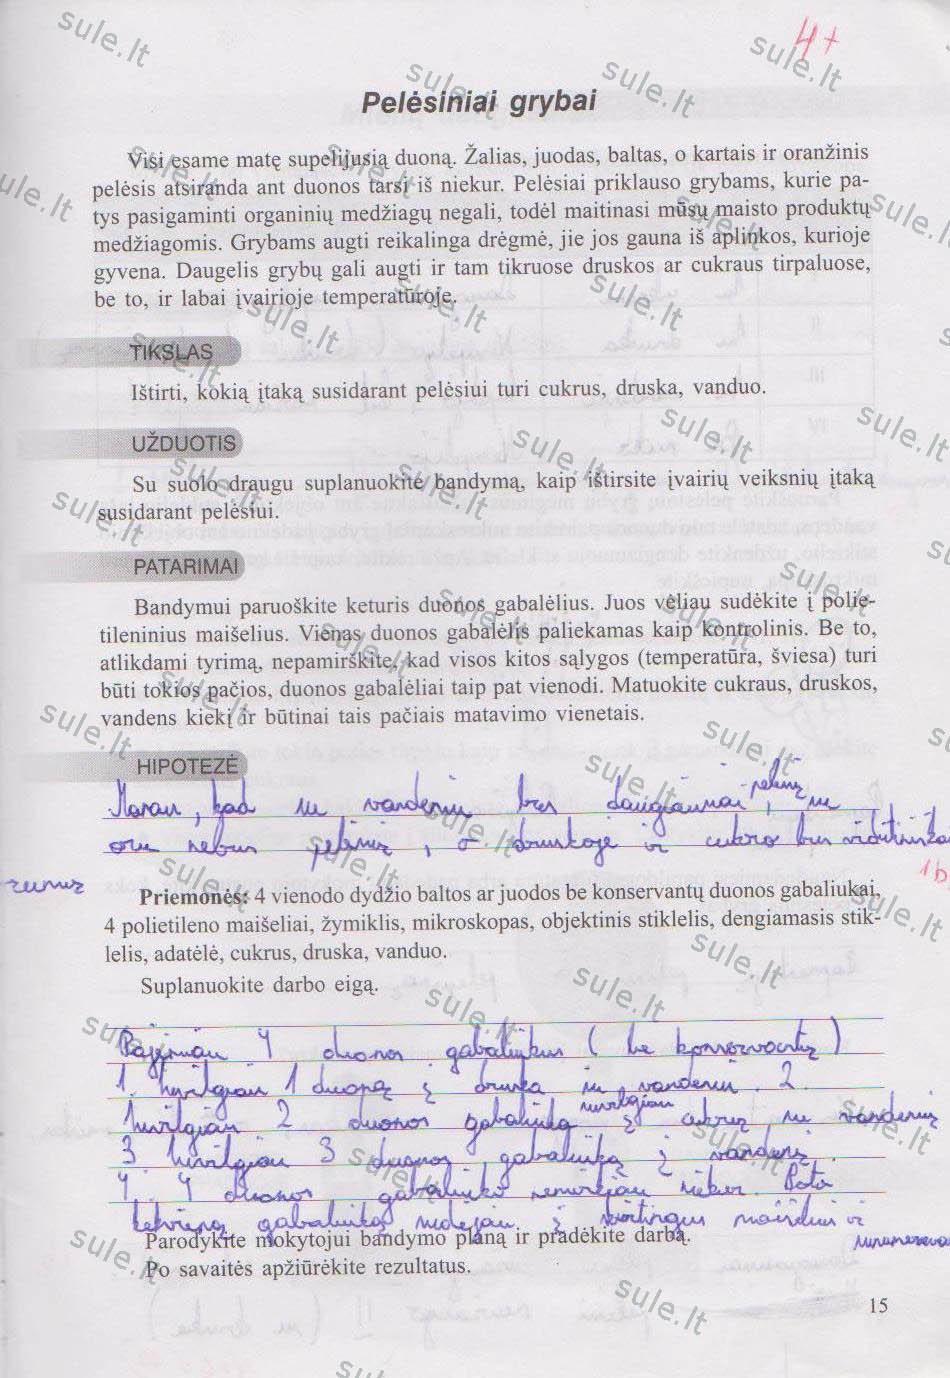 4+
Pelėsiniai grybai
Visi esame matę supelijusią duoną. Žalias, juodas, baltas, o kartais ir oranžinis
pelėsis atsiranda ant duonos tarsi iš niekur. Pelėsiai priklauso grybams, kurie pa-
tys pasigaminti organinių medžiagų negali, todėl maitinasi mūsų maisto produktų
medžiagomis. Grybams augti reikalinga drėgmė, jie jos gauna iš aplinkos, kurioje
gyvena. Daugelis grybų gali augti ir tam tikruose druskos ar cukraus tirpaluose,
be to, ir labai įvairioje temperatūroje.
TIKSLAS
Ištirti, kokią įtaką susidarant pelėsiui turi cukrus, druska, vanduo.
UŽDUOTIS
Su suolo draugu suplanuokite bandymą, kaip ištirsite įvairių veiksnių įtaką
susidarant pelėsiui.
PATARIMAI
Bandymui paruoškite keturis duonos gabalėlius. Juos vėliau sudėkite į polie-
tileninius maišelius. Vienas duonos gabalėlis paliekamas kaip kontrolinis. Be to,
atlikdami tyrimą, nepamirškite, kad visos kitos sąlygos (temperatūra, šviesa) turi
būti tokios pačios, duonos gabalėliai taip pat vienodi. Matuokite cukraus, druskos,
vandens kiekį ir būtinai tais pačiais matavimo vienetais.
HIPOTEZĖ
Manau, kad su vandeniu bus daugiausiai pelėsių, su
oru nebus pelėsių, o druskoje ir cukro bus
1b
Priemonės: 4 vienodo dydžio baltos ar juodos be konservantų duonos gabaliukai,
4 polietileno maišeliai, žymiklis, mikroskopas, objektinis stiklelis, dengiamasis stik-
lelis, adatėlė, cukrus, druska, vanduo.
Suplanuokite darbo eigą.
4 duonos gabaliukus (be konservantų)
1. 1 duoną į druską su vandeniu. 2.
2 duonos gabaliuką į cukrų su vandeniu
3 3 duonos gabaliuką į vandenį.
4. 4 duonos gabaliuko niekur. Poto
kekvieną gabaliuką sudėjau į skirtingus maišelius ir
Parodykite mokytojui bandymo planą ir pradėkite darbą.
Po savaitės apžiūrėkite rezultatus.
15
sule.lt